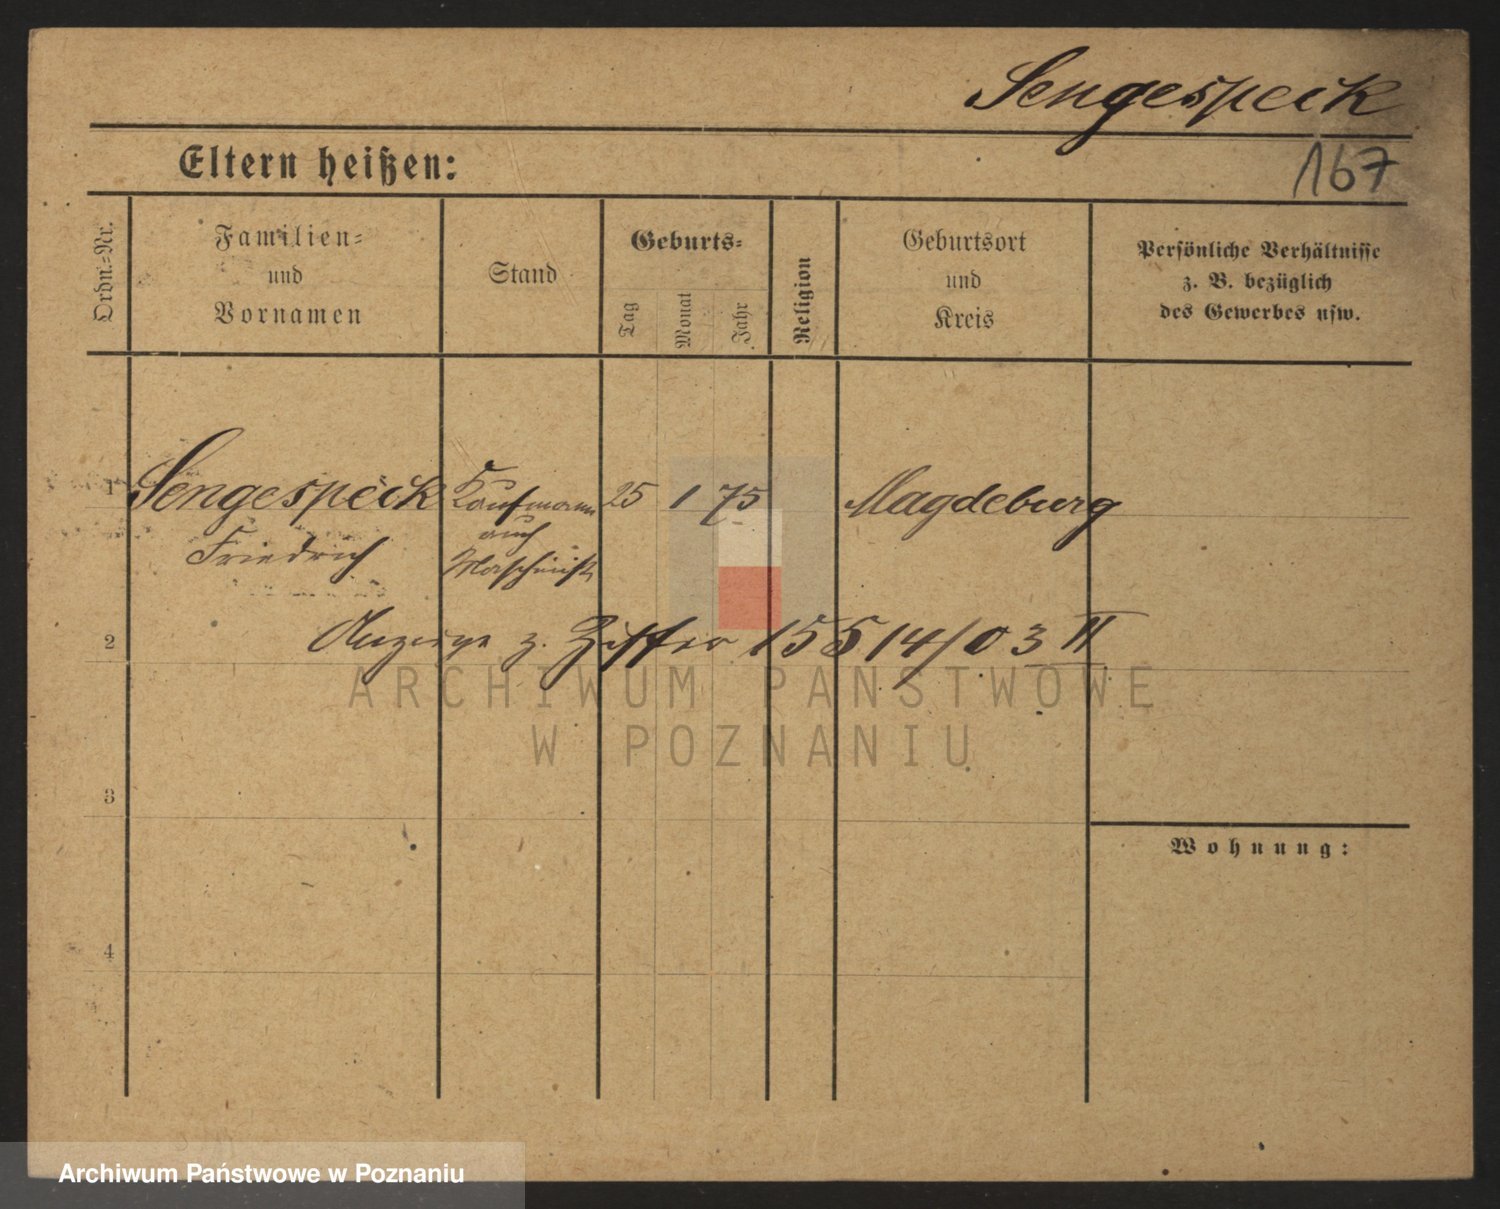 Sengespeick
Eltern heißen:
167
Ordn.-Nr.
Familien-
und
Vornamen
Stand
Geburts-
Tag
Monat
Jahr
Religion
Geburtsort
und
Kreis
Persönliche Verhältnisse
z. B. bezüglich
des Gewerbes usw.
1
Sengespeick
Friedrich
Kaufmann
auch
Maschinist
25
1
75
Magdeburg
2
Anzeige z. Ziffer 15514/03 II
ARCHIWUM PAŃSTWOWE
W POZNANIU
3
Wohnung:
4
Archiwum Państwowe w Poznaniu